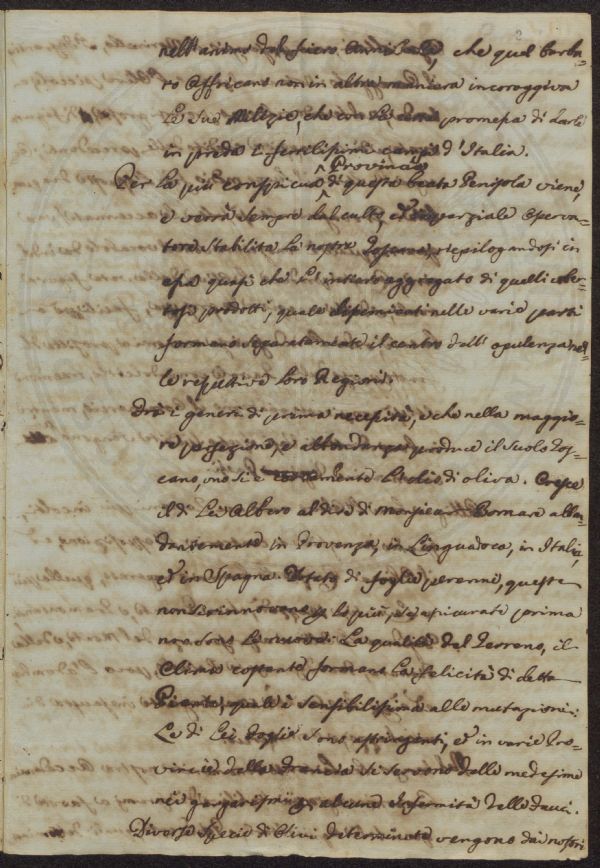 nell'animo del fiero Annibale, che quel barba=
ro Affricano non in altra maniera incoraggiva
le sue Milizie, che con la promessa di darle
in preda i fertilissimi campi d'Italia.
Per la più conspicua Provincia di questa beata Penisola viene,
e verrà sempre dal culto, ed imparziale Osserva=
tore stabilita la nostra Toscana, riepilogandosi in
essa quasi che l'intiero aggregato di quelli
prodotti, quale disseminati nelle varie parti
formano separatamente il centro dell'opulenza nel=
le respettive loro Regioni.
Tra i generi di prima necessità, e che nella maggio=
re perfezione, e abbondanza produce il suolo Tos=
cano, uno si è certamente l'olio di oliva. Cresce
il di Lei Albero al dire di Monsieur Bomare abbon=
dantemente in Provenza, in Linguadoca, in Italia,
ed in Spagna. Dotato di foglie perenni, queste
non si rinnovano per lo più, se assicurate prima
non sono le nuove. La qualità del Terreno, il
Clima costante formano la felicità di detta
Pianta, quale è sensibilissima alle mutazioni.
Le di Lei foglie sono astringenti, ed in varie Pro=
vincie della Francia si servono delle medesime
nei gargarismi per alcune infermità delle fauci.
Diverse specie di Olivi determinate vengono dai nostri